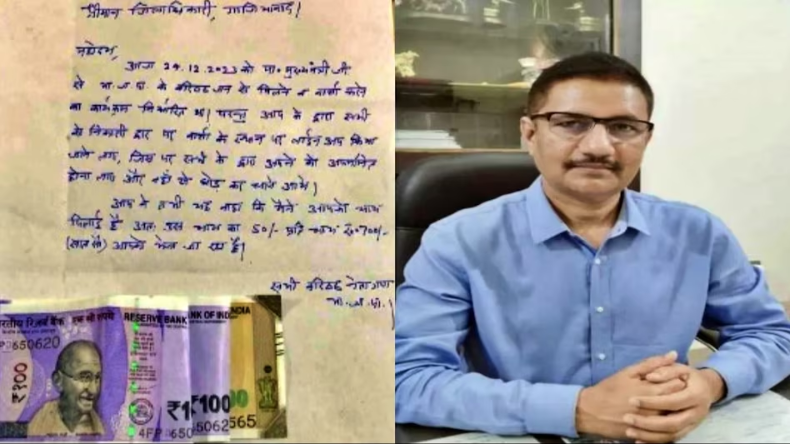 श्रीमान जिलाधिकारी, गाजियाबाद।
महोदय,
आज 24.12.2023 को मा० मुख्यमंत्री जी
से भा.ज.पा. के वरिष्ठ जन से मिलने व वार्ता करने
का कार्यक्रम निर्धारित था। परन्तु आप के द्वारा सभी
को निकासी द्वार पर वार्ता के स्थान पर लाईन अप किया
जाने लगा, जिस पर सभी के द्वारा अपने को अपमानित
होना लगा और वहाँ से छोड़ कर चले आये।
आप ने सभी यह कहा कि मैंने आपको चाय
पिलाई है अतः उस चाय का 50/- प्रति चाय ₹0700/-
(सात सौ) आपको भेजा जा रहा है।
सभी वरिष्ठ नेता गण
भा.ज.पा.।
भारतीय रिज़र्व बैंक
RESERVE BANK
BANK OF INDIA
INDIA
650620
₹100
₹1
₹100
00
4FP 650
5062
565